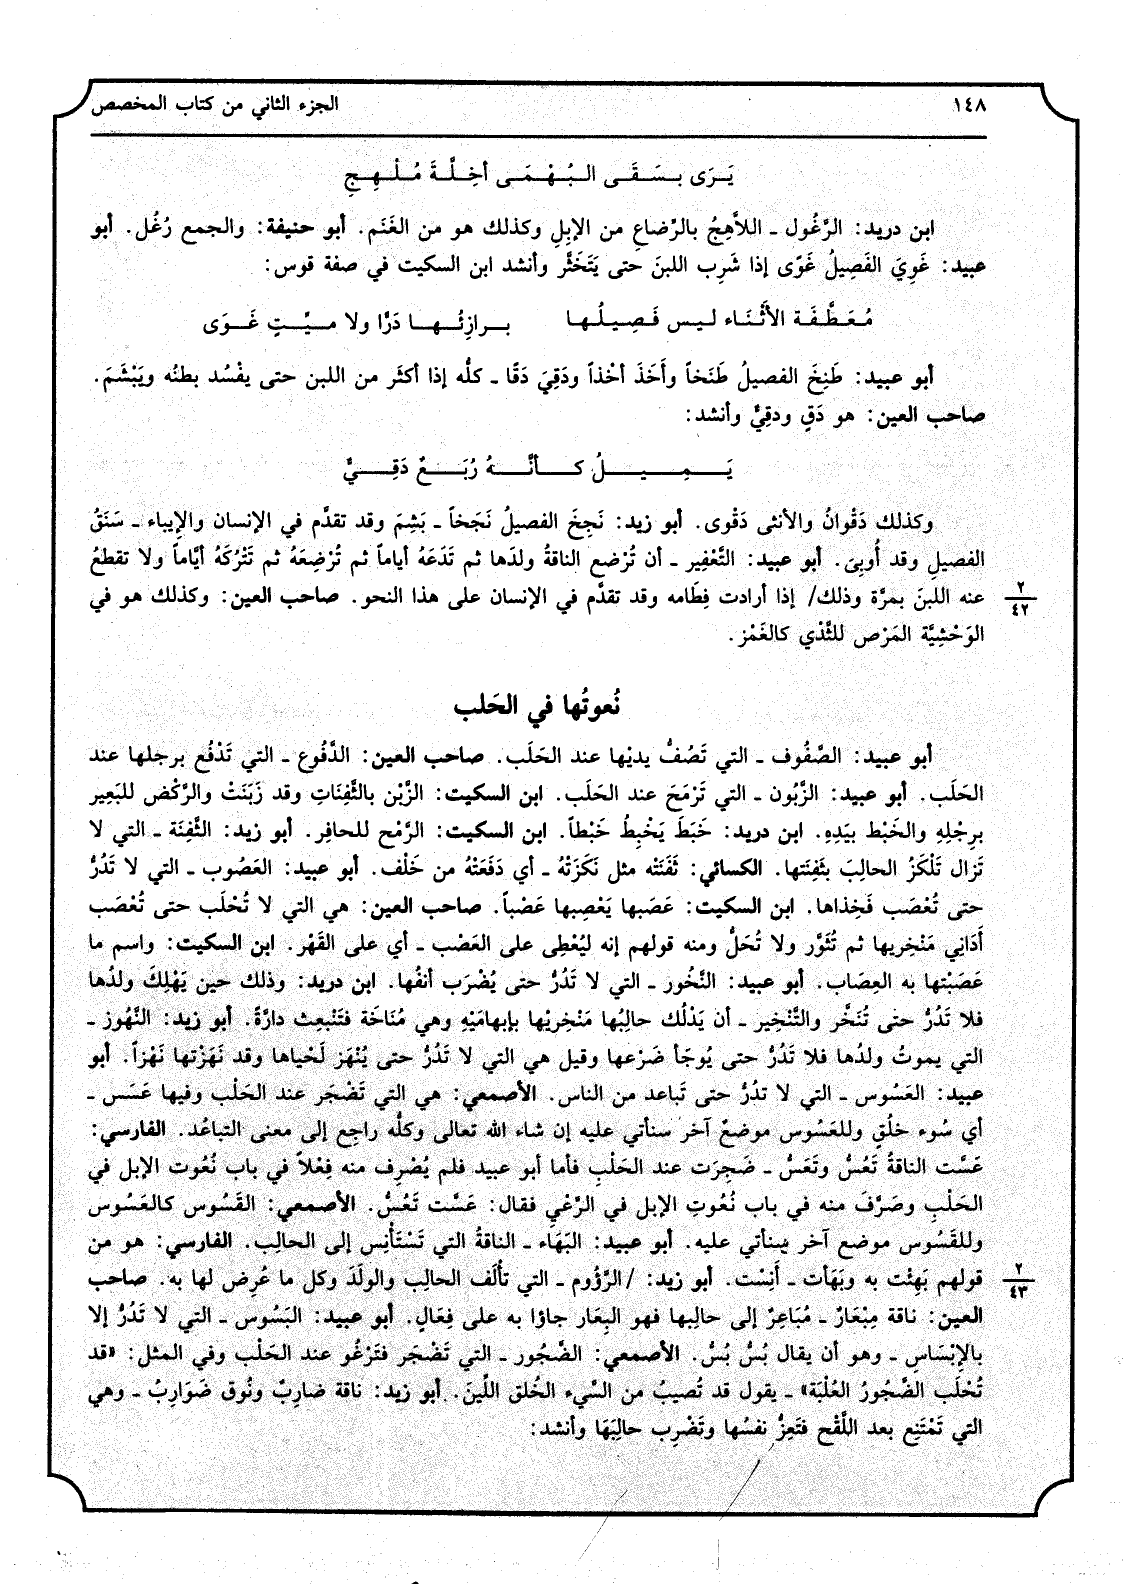 ١٤٨ الجزء الثاني من كتاب المخصص
يَرَى بسَقَى البُهْمَى أخِلَّةَ مُلْهِجِ
ابن دريد: الرَّغُول ـ اللاَّهِجُ بالرِّضاعِ من الإبِلِ وكذلك هو من الغَنَم. أبو حنيفة: والجمع رُغُل. أبو
عبيد: غَوِيَ الفَصِيلُ غَوًى إذا شَرِب اللبنَ حتى يَتَخَثَّر وأنشد ابن السكيت في صفة قوس:
مُعَطَّفَة الأَثْنَاء ليس فَصِيلُها برازِئُها دَرًّا ولا ميِّتٍ غَوَى
أبو عبيد: طَنِخَ الفصيلُ طَنَخاً وأَخَذَ أخْذاً ودَقِيَ دَقًا ـ كلُّه إذا أكثَر من اللبن حتى يفْسُد بطنُه ويَبْشَمَ.
صاحب العين: هو دَقٍ ودقِيٌّ وأنشد:
يَمِيلُ كأنَّهُ رُبَعٌ دَقِيٌّ
وكذلك دَقْوانُ والأنثى دَقْوى. أبو زيد: نَجِخَ الفصيلُ نَجَخاً ـ بَشِمَ وقد تقدَّم في الإنسان والإيباء ـ سَنَقُ
الفصيلِ وقد أُوبِىَ. أبو عبيد: التَّعْفِير ـ أن تُرْضع الناقةُ ولدَها ثم تَدَعَهُ أياماً ثم تُرْضِعَهُ ثم تَتْرُكَهُ أيَّاماً ولا تقطعُ
عنه اللبنَ بمرَّة وذلك/ إذا أرادت فِطَامه وقد تقدَّم في الإنسان على هذا النحو. صاحب العين: وكذلك هو في ٢/٤٢
الوَحْشِيَّة المَرْص للثَّدْي كالغَمْز.
نُعوتُها في الحَلب
أبو عبيد: الصَّفُوف ـ التي تَصُفُّ يديْها عند الحَلَب. صاحب العين: الدَّفُوع ـ التي تَدْفُع برجلها عند
الحَلَب. أبو عبيد: الزَّبُون ـ التي تَرْمَحَ عند الحَلَب. ابن السكيت: الزَّبْن بالثَّفِنَاتِ وقد زَبَنَتْ والرَّكْض للبَعِير
برِجْلِهِ والخَبْط بيَدِهِ. ابن دريد: خَبَطَ يَخْبِطُ خَبْطاً. ابن السكيت: الرَّمْح للحافِر. أبو زيد: الثَّفِنَة ـ التي لا
تَزال تَلْكَزُ الحالِبَ بثَفِنَتها. الكسائي: ثَفَنَتْه مثل نَكَزَتْهُ ـ أي دَفَعَتْهُ من خَلْف. أبو عبيد: العَصُوب ـ التي لا تَدُرُّ
حتى تُعْصَب فَخِذاها. ابن السكيت: عَصَبها يَعْصِبها عَصْباً. صاحب العين: هي التي لا تُحْلَب حتى تُعْصَب
أَدَانِي مَنْخِريها ثم تُثَوَّر ولا تُحَلُّ ومنه قولهم إنه ليُعْطِى على العَصْب ـ أي على القَهْر. ابن السكيت: واسم ما
عَصَبْتها به العِصَاب. أبو عبيد: النَّخُور ـ التي لا تَدُرُّ حتى يُضْرَب أنفُها. ابن دريد: وذلك حين يَهْلِكَ ولدُها
فلا تَدُرُّ حتى تُنَخَّر والتَّنْخِير ـ أن يَدْلُك حالِبُها مَنْخِريْها بإبهامَيْهِ وهي مُنَاخَة فتَنْبعِث دارَّةً. أبو زيد: النَّهُوز ـ
التي يموتُ ولدُها فلا تَدُرُّ حتى يُوجَأ ضَرْعها وقيل هي التي لا تَدُرُّ حتى يُنْهَز لَحْياها وقد نَهَزْتها نَهْزاً. أبو
عبيد: العَسُوس ـ التي لا تدُرُّ حتى تَباعد من الناس. الأصمعي: هي التي تَضْجَر عند الحَلْب وفيها عَسَس ـ
أي سُوء خلُقٍ وللعَسُوس موضعٌ آخر سنأتي عليه إن شاء الله تعالى وكلُّه راجِع إلى معنى التباعُد. الفارسي:
عَسَّت الناقةُ تَعُسُّ وتَعَسُّ ـ ضَجِرَت عند الحَلْبِ فأما أبو عبيد فلم يُصْرِف منه فِعْلاً في باب نُعُوت الإبل في
الحَلْبِ وصَرَّفَ منه في باب نُعُوتِ الإبل في الرِّعْي فقال: عَسَّت تَعُسُّ. الأصمعي: القَسُوس كالعَسُوس
وللقَسُوس موضع آخر سنأتي عليه. أبو عبيد: البَهَاء ـ الناقةُ التي تَسْتَأْنِس إلى الحالِب. الفارسي: هو من
قولهم بَهِئْت به وبَهَأت ـ أَنِسْت. أبو زيد: /الرَّؤُوم ـ التي تألَف الحالِب والولَدَ وكل ما عُرِض لها به. صاحب ٢/٤٣
العين: ناقة مِبْعَارٌ ـ مُبَاعِرٌ إلى حالِبها فهو البِعَار جاؤا به على فِعَالٍ. أبو عبيد: البَسُوس ـ التي لا تَدُرُّ إلا
بالإبْسَاسِ ـ وهو أن يقال بُسْ بُسْ. الأصمعي: الضَّجُور ـ التي تَضْجَر فتَرْغُو عند الحَلْب وفي المثل: «قد
تُحْلَب الضَّجُورُ العُلْبَة» ـ يقول قد تُصِيبُ من السَّيء الخُلق اللَّينَ. أبو زيد: ناقة ضارِبٌ ونُوق ضَوَارِبُ ـ وهي
التي تَمْتَنِع بعد اللَّقْح فتَعِزُّ نفسُها وتَضْرِب حالِبَهَا وأنشد: